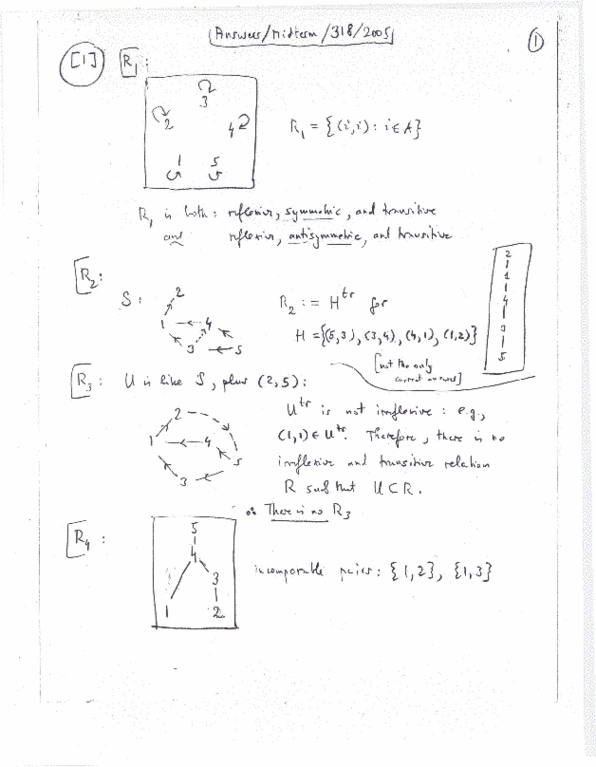 Answers/Midterm/318/2005
1
[1] R₁:
3
2 4
1 5
R₁ = {(i,i): i ∈ A}
R₁ is both: reflexive, symmetric, and transitive
and reflexive, antisymmetric, and transitive
R₂:
S:
2
1 4
3 5
R₂ := H^tr for
H = {(5,3), (3,4), (4,1), (1,2)}
[not the only
correct answer]
2
1
4
3
5
R₃: U is like S, plus (2,5):
2
1 4
5
3
U^tr is not irreflexive: e.g.,
(1,1) ∈ U^tr. Therefore, there is no
irreflexive and transitive relation
R such that U ⊂ R.
∴ There is no R₃
R₄:
5
4
3
1 2
incomparable pairs: {1,2}, {1,3}